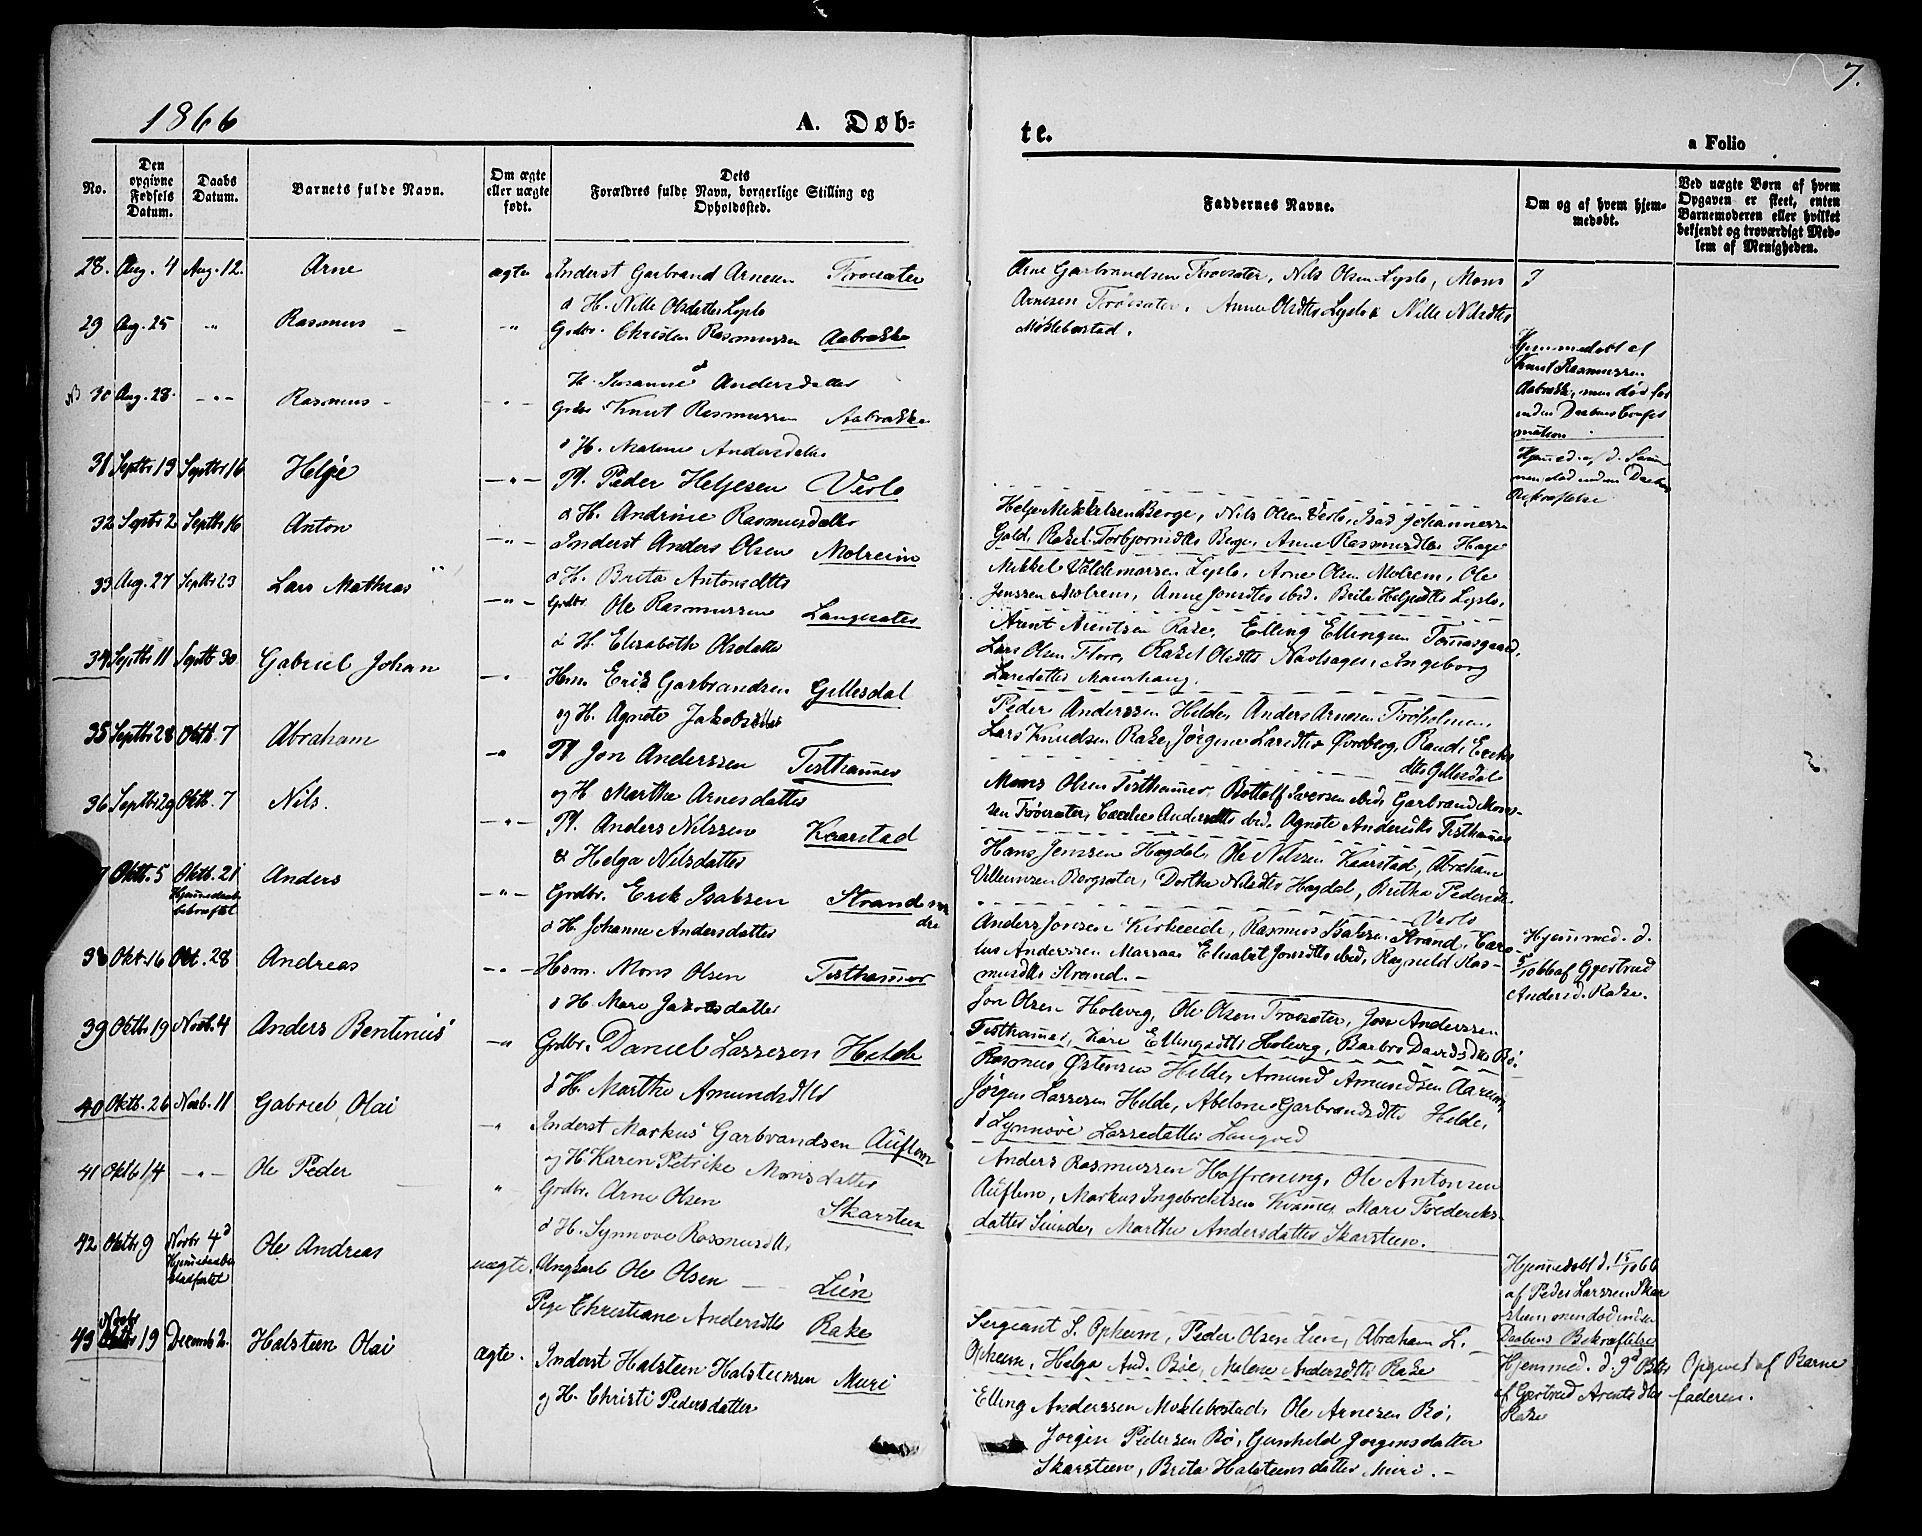 7.
1866
A. Døb-
te.
a Folio
No.
Den opgivne Fødsels Datum.
Daabs Datum.
Barnets fulde Navn.
Om ægte eller uægte født.
Dets Forældres fulde Navn, borgerlige Stilling og Opholdssted.
Faddernes Navne.
Om og af hvem hjem-
medøbt.
Ved uægte Børn af hvem
Opgaven er skeet, enten
Barnemoderen eller hvilket
bekjendt og troværdigt Med-
lem af Menigheden.
28. Aug. 4 Aug. 12. Arne ægte Inderst Garbrand Arnesen Trovsæter
& H. Nille Olsdatter Lyslo
Arne Garbrandsen Trovsæter, Nils Olsen Lyslo, Mons
Arnesen Trovsæter, Anne Olsdtr Lyslo & Nille Nilsdtr
Myklebostad.
29 Aug. 25 -"- Rasmus -"- Grdbr. Christen Rasmussen Aabrække
H. Susanne Andersdatter
Hjemmedøbt af
Knut Rasmussen
Aabrække, men død for
inden Daabens Confir
mation
30 Aug. 28. -"- Rasmus -"- Grdbr Knut Rasmussen Aabrække
& H. Malene Andersdatter
Hjemmed. af d. Samme
men død inden Daabens
Bekræftelse
31 Septbr 13 Septbr 16 Helge -"- Pl. Peder Helgesen Verlo
& H. Andrine Rasmusdatter
Helge Mikkelsen Berge, Nils Olsen Verlo, Isak Johannessen
Gald, Rakel Torbjornsdtr Berge, Anne Rasmusdtr Hage
32 Septbr 2 Septbr 16 Anton -"- Inderst Anders Olsen Molreim
& H. Brita Antonsdtr
Mikkel Valdemarsen Lyslo, Arne Olsen Molrem, Ole
Jenssen Molrem, Anne Jensdtr ibid. Brita Helgesdtr Lyslo.
33 Aug. 27 Septbr 23 Lars Mathias -"- Grdbr. Ole Rasmussen Langesæter
& H. Elisabeth Olsdatter
Arent Arentsen Rake, Elling Ellingsen Tomasgaard,
Lars Olsen Flore, Rakel Olsdtr Navlsager, Ingeborg
Larsdatter Maurhaug.
34 Septbr 11 Septbr 30 Gabriel Johan -"- Hm. Erik Garbrandsen Gillesdal
og H. Agnete Jakobsdtr
Peder Anderssen Hilde, Anders Arnesen Troholmen,
Lars Knudsen Rake, Jørgine Larsdtr Øvreberg, Randi Eriks
dtr Gillesdal
35 Septbr 28 Oktb. 7 Abraham -"- Pl. Jon Anderssen Tisthamer
og H. Marthe Arnesdatter
Mons Olsen Tisthamer, Bottolf Iversen ibid, Garbrand Mons
sen Trovsæter, Andersdtr ibid. Agnete Andersdtr Tisthamer
36 Septbr 29 Oktb. 7 Nils. -"- Pl. Anders Nilssen Kaarstad
& Helga Nilsdatter
Hans Jenssen Hogdal, Ole Nilssen Kaarstad, Abraham
Villumsen Borgsæter, Dorthe Nilsdtr Hogdal, Brithe Pedersdtr
Verlo
7 Oktb. 5 Oktb. 21 Anders -"- Grdbr. Erik Isaksen Strand
Hjemmedaab
bekræftet
& H. Johanne Andersdatter
Anders Jonsen Kirkeeide, Rasmus Isaksen Strand, Caro-
lus Anderssen Maraas Elisabet Jonsdtr ibid, Ragnhild Ras-
musdtr Strand. -
Hjemmed. d.
5/10 66 af Gjertrud
Andersd. Rake.
38 Okt. 16 Okt. 28 Andreas -"- Hsm. Mons Olsen Tisthamer
& H. Mari Jakobsdatter
Jon Olsen Holevig, Ole Olsen Trovsæter, Jon Anderssen
Tisthamer, Kari Ellingsdtr Holevig, Barbro Davidsdtr Bø.
39 Oktbr 19 Novb. 4 Anders Bentinus -" Grdbr. Daniel Lassesen Hilde
& H. Marthe Amundsdtr
Rasmus Østensen Hilde, Amund Amundsen Aarum,
Jørgen Lassesen Hilde, Abelone Garbrandsdtr Hilde,
& Synnove Lassedatter Langved
40 Oktb. 26 Novb. 11 Gabriel Olai -" Inderst Markus Garbrandsen Auflem
og H. Karen Petrike Monsdatter
Anders Rasmussen Hoffrening, Ole Antonsen
Auflem, Markus Ingebrektsen Kvame, Mari Frederiks-
datter Sunde, Marthe Andersdatter Skarsteen.
41 Oktb 14 -"- Ole Peder " Grdbr. Arne Olsen Skarsteen
& H. Synnove Rasmusdtr
42 Oktbr 9 Novbr 4d Ole Andreas uægte. Ungkarl Ole Olsen Lien
Hjemmedaaben
stadfæstet
Pige Christiane Andersdtr Rake
Sergeant S. Opheim, Peder Olsen Lien, Abraham L.
Opheim, Helga And. Böe, Malene Andersdtr Rake
Hjemmedøbt d. 15/10 66
af Peder Larssen Skar
steen men død inden
Daabens Bekræftelse
Hjemmed. d. 9d Oktbr
af Gjertrud Arentsdtr
Rake
Opgivet af Barne
faderen.
43 Novbr 19 Decemb 2. Halsteen Olai ægte. Inderst Halsteen Halsteensen Muri
og H. Christi Pedersdatter
Elling Anderssen Myklebostad, Ole Arnesen Bø,
Jørgen Pedersen Bø, Gunhild Jorgensdatter
Skarsteen, Brita Halsteensdatter Muri. -